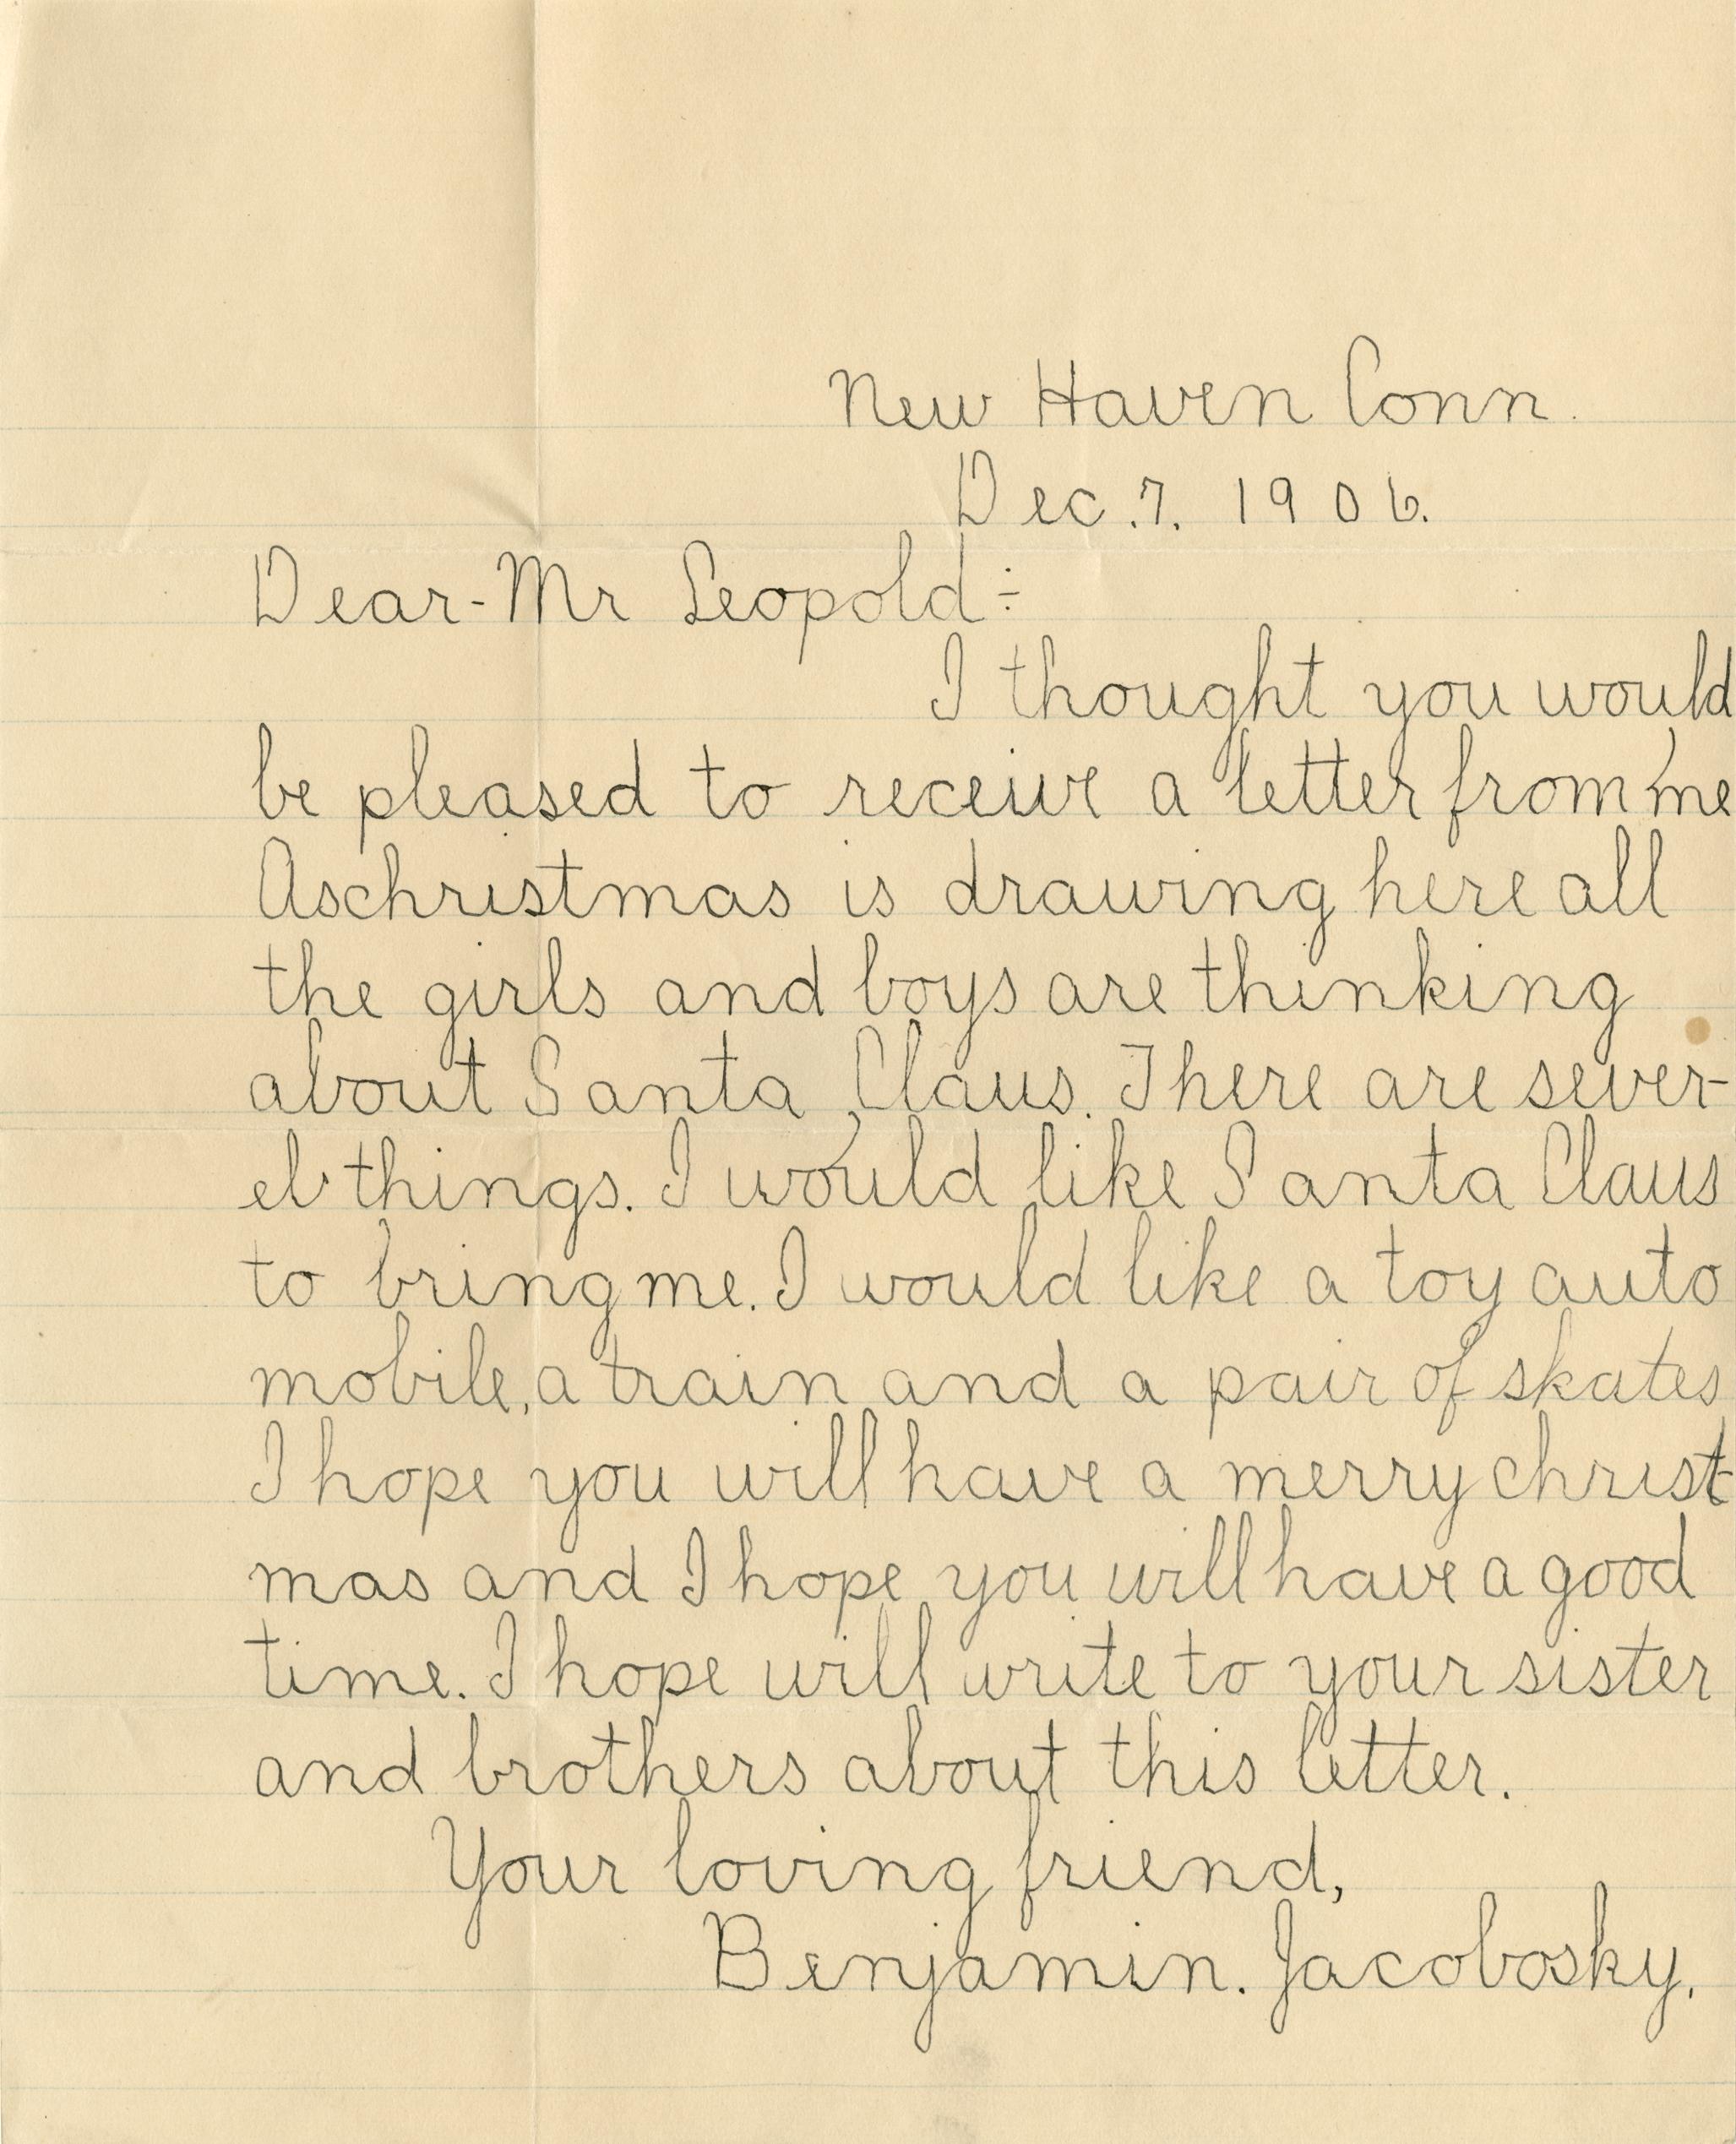 New Haven Conn.
Dec. 7. 1906.
Dear-Mr Leopold÷
I thought you would
be pleased to receive a letter from me
Aschristmas is drawing here all
the girls and boys are thinking
about Santa Claus. There are sever-
el things. I would like Santa Claus
to bring me. I would like a toy auto
mobile, a train and a pair of skates
I hope you will have a merry christ-
mas and I hope you will have a good
time. I hope will write to your sister
and brothers about this letter.
Your loving friend,
Benjamin. Jacobosky.